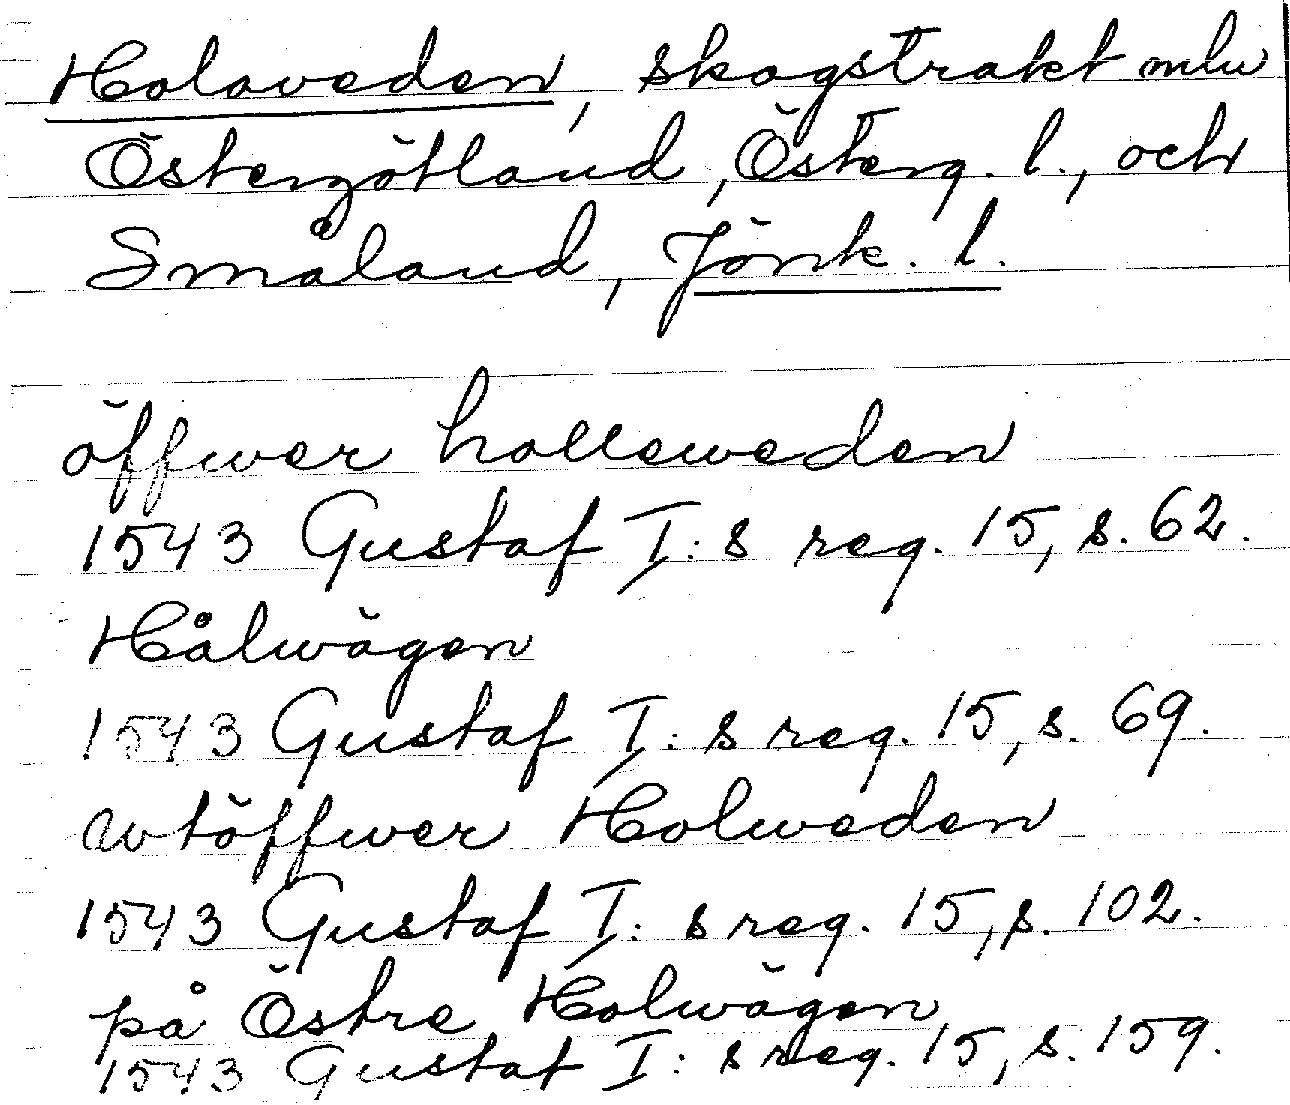 Holaveden, skogstrakt mlw
Östergötland, Österg. l., och
Småland, Jönk. l.
öffwer holleweden
1543 Gustaf I:s reg. 15, s. 62.
Hålwägen
1543 Gustaf I:s reg. 15, s. 69.
wtöffwer Holweden
1543 Gustaf I:s reg. 15, s. 102.
på Östre Holwägen
1543 Gustaf I:s reg. 15, s. 159.